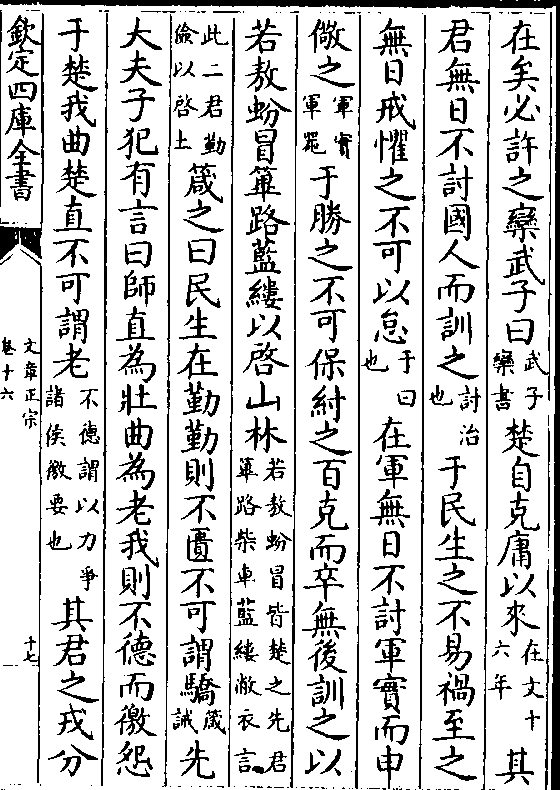 在矣必許之欒武子曰武子欒書楚自克庸以來在文十六年其
君無日不討國人而訓之討治也于民生之不易禍至之
無日戒懼之不可以怠于曰也在軍無日不討軍實而申
儆之軍實軍器于勝之不可保紂之百克而卒無後訓之以
若敖蚡冒篳路藍縷以啓山林若敖蚡冒皆楚之先君篳路柴車藍縷敝衣言
此二君勤儉以啓土箴之曰民生在勤勤則不匱不可謂驕箴誡先
大夫子犯有言曰師直為壯曲為老我則不德而徼怨
于楚我曲楚直不可謂老不德謂以力爭諸侯徼要也其君之戎分
欽定四庫全書
文章正宗
卷十六
十七